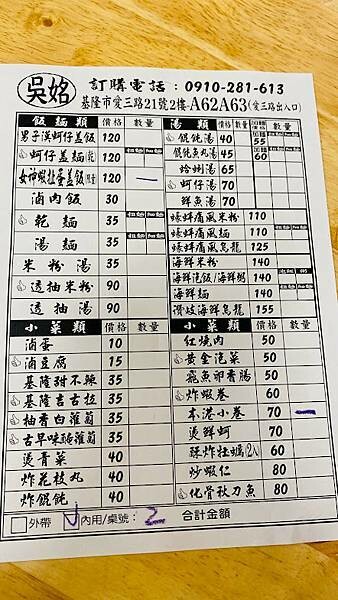 吳姳
訂購電話：0910-281-613
基隆市愛三路21號2樓-A62A63(愛三路出入口)
飯麵類 價格 數量
男子漢蚵仔蓋飯 120
蚵仔蓋麵(乾) 120
女神蝦扯蛋蓋飯(限量) 120 —
滷肉飯 30
乾麵 35
湯麵 35
米粉湯 35
透抽米粉 90
透抽湯 90
湯類 價格 加麵價格 數量
餛飩湯 40 55
餛飩魚丸湯 45 60
蛤蜊湯 65
蚵仔湯 70
鮮魚湯 70
蟳蚌痛風米粉 110
蟳蚌痛風麵 110
蟳蚌痛風烏龍 125
海鮮米粉 140
海鮮泡飯/海鮮粥 140
海鮮麵 140
讚岐海鮮烏龍 155
小菜類 價格 數量
滷蛋 10
滷豆腐 15
基隆甜不辣 35
基隆吉古拉 35
柚香白蘿蔔 35
古早味醃蘿蔔 35
燙青菜 40
炸花枝丸 40
炸餛飩 40
小菜類 價格 數量
紅燒肉 50
黃金泡菜 50
飛魚卵香腸 50
炸蝦卷 60
本港小卷 70 —
燙鮮蚵 70
酥炸牡蠣(2入) 60
炒蝦仁 80
化骨秋刀魚 80
外帶 V 內用/桌號： 2 合計金額